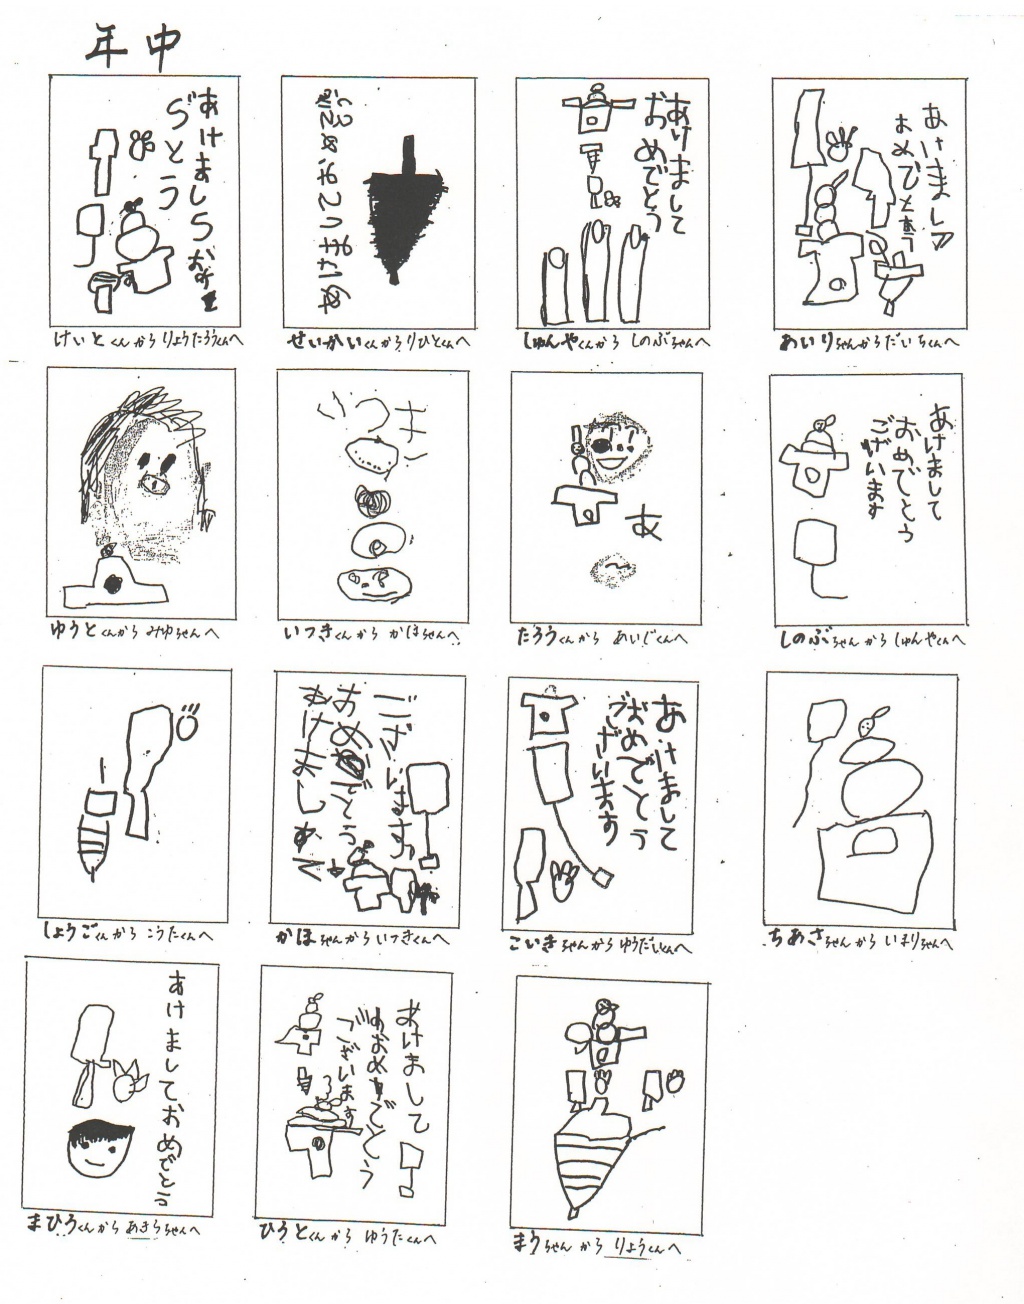 年中
あけまして
おめでとう
あけまして
おめでとう
けいとくんから りょうたろうくんへ
せいかいくんから りひとくんへ
しゅんやくんから しのぶちゃんへ
あいりちゃんから だいちくんへ
あ
あけまして
おめでとう
ございます
ゆうとくんから みゆちゃんへ
いつきくんから かほちゃんへ
たろうくんから あいじくんへ
しのぶちゃんから しゅんやくんへ
ございます。
おめでとう
あけまして
おめでとう
ございます
しょうごくんから こうたくんへ
かほちゃんから いつきくんへ
こいきちゃんから ゆうだいくんへ
ちあさちゃんから いまりちゃんへ
あけましておめでとう
あけまして
おめでとう
ございます
まひろくんから あきらちゃんへ
ひろとくんから ゆうたくんへ
まうちゃんから りょうくんへ